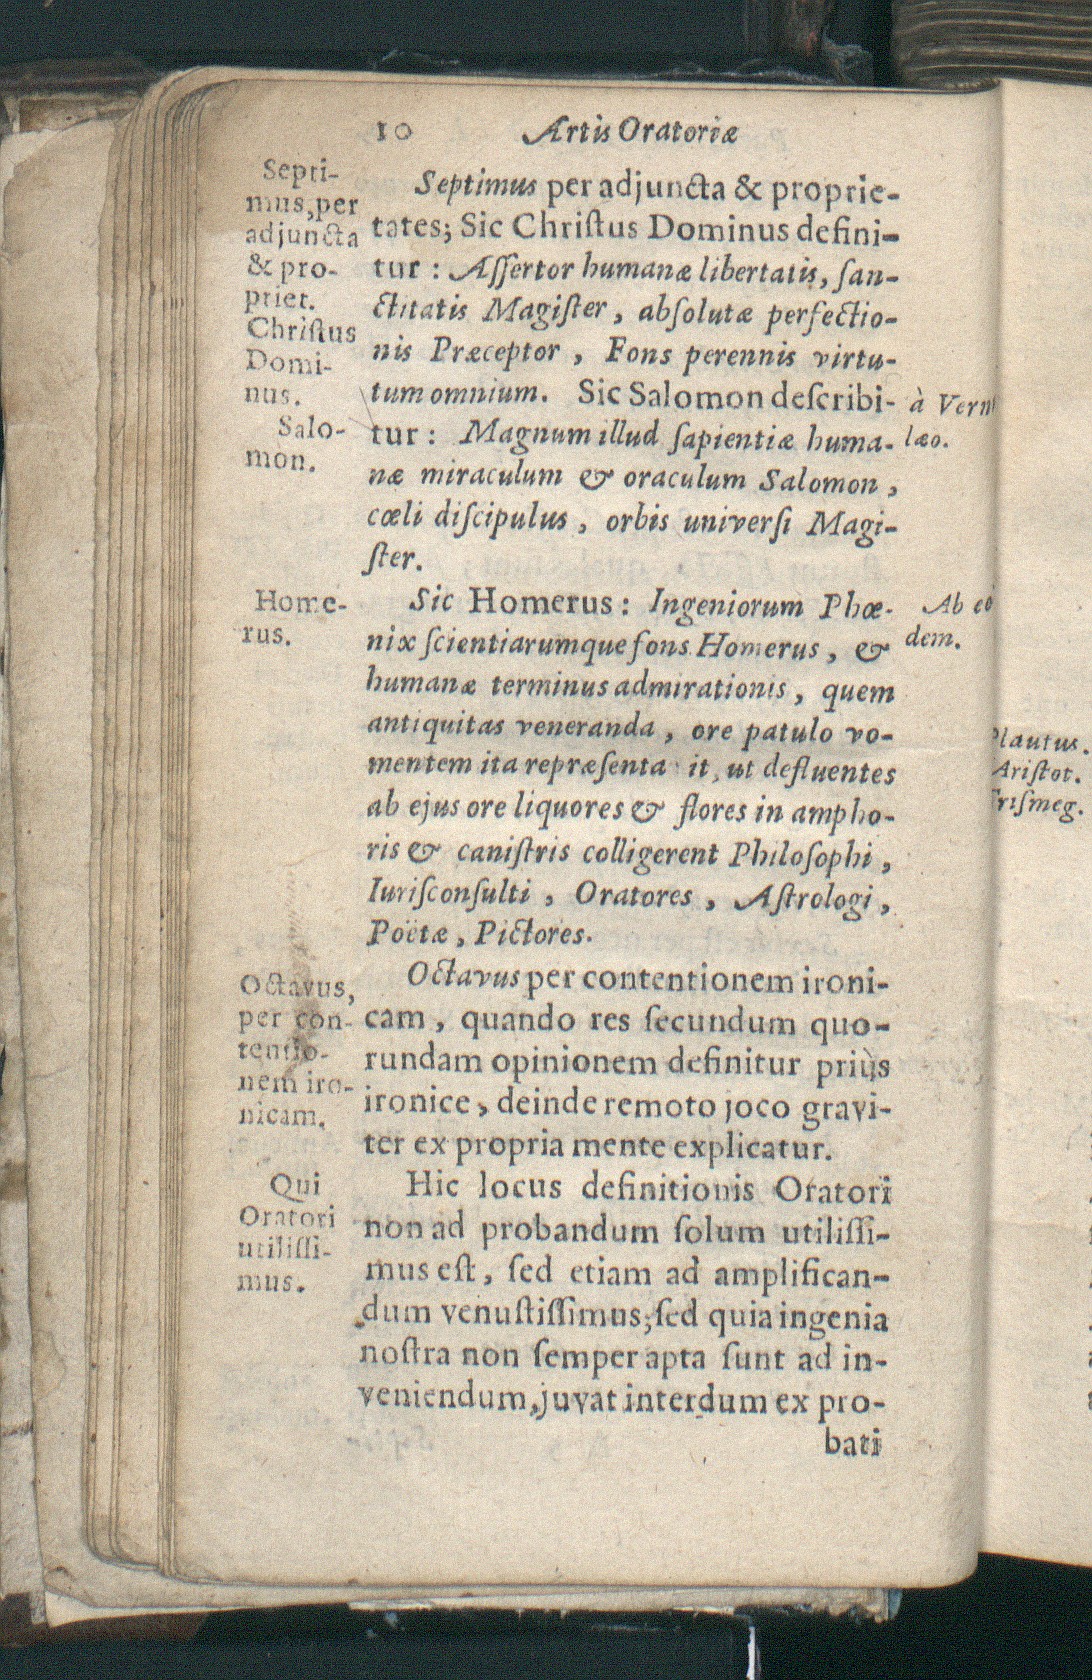 10 Artis Oratoriæ
Septi-
mus, per
adjuncta
& pro-
priet.
Chriſtus
Domi-
nus.
Salo-
mon.
Septimus per adjuncta & proprie-
tates; Sic Chriſtus Dominus defini-
tur : Aſſertor humanæ libertatis, ſan-
ctitatis Magiſter, abſolutæ perfectio-
nis Præceptor, Fons perennis virtu-
tum omnium. Sic Salomon deſcribi-
tur : Magnum illud ſapientiæ huma-
næ miraculum & oraculum Salomon,
cœli diſcipulus, orbis univerſi Magi-
ſter.
à Vern
læo.
Home-
rus.
Sic Homerus : Ingeniorum Phœ-
nix ſcientiarumque fons Homerus, &
humanæ terminus admirationis, quem
antiquitas veneranda, ore patulo vo-
mentem ita repræſenta it, ut defluentes
ab ejus ore liquores & flores in ampho-
ris & caniſtris colligerent Philoſophi,
Iuriſconſulti, Oratores, Aſtrologi,
Poëtæ, Pictores.
Ab eo
dem.
Octavus,
per con-
tentio-
nem iro-
nicam.
Octavus per contentionem ironi-
cam, quando res ſecundum quo-
rundam opinionem definitur priùs
ironice, deinde remoto joco gravi-
ter ex propria mente explicatur.
Qui
Oratori
utiliſſi-
mus.
Hic locus definitionis Oratori
non ad probandum ſolum utiliſſi-
mus eſt, ſed etiam ad amplifican-
dum venuſtiſſimus; ſed quia ingenia
noſtra non ſemper apta ſunt ad in-
veniendum, juvat interdum ex pro-
bati
Plautus.
Ariſtot.
Triſmeg.